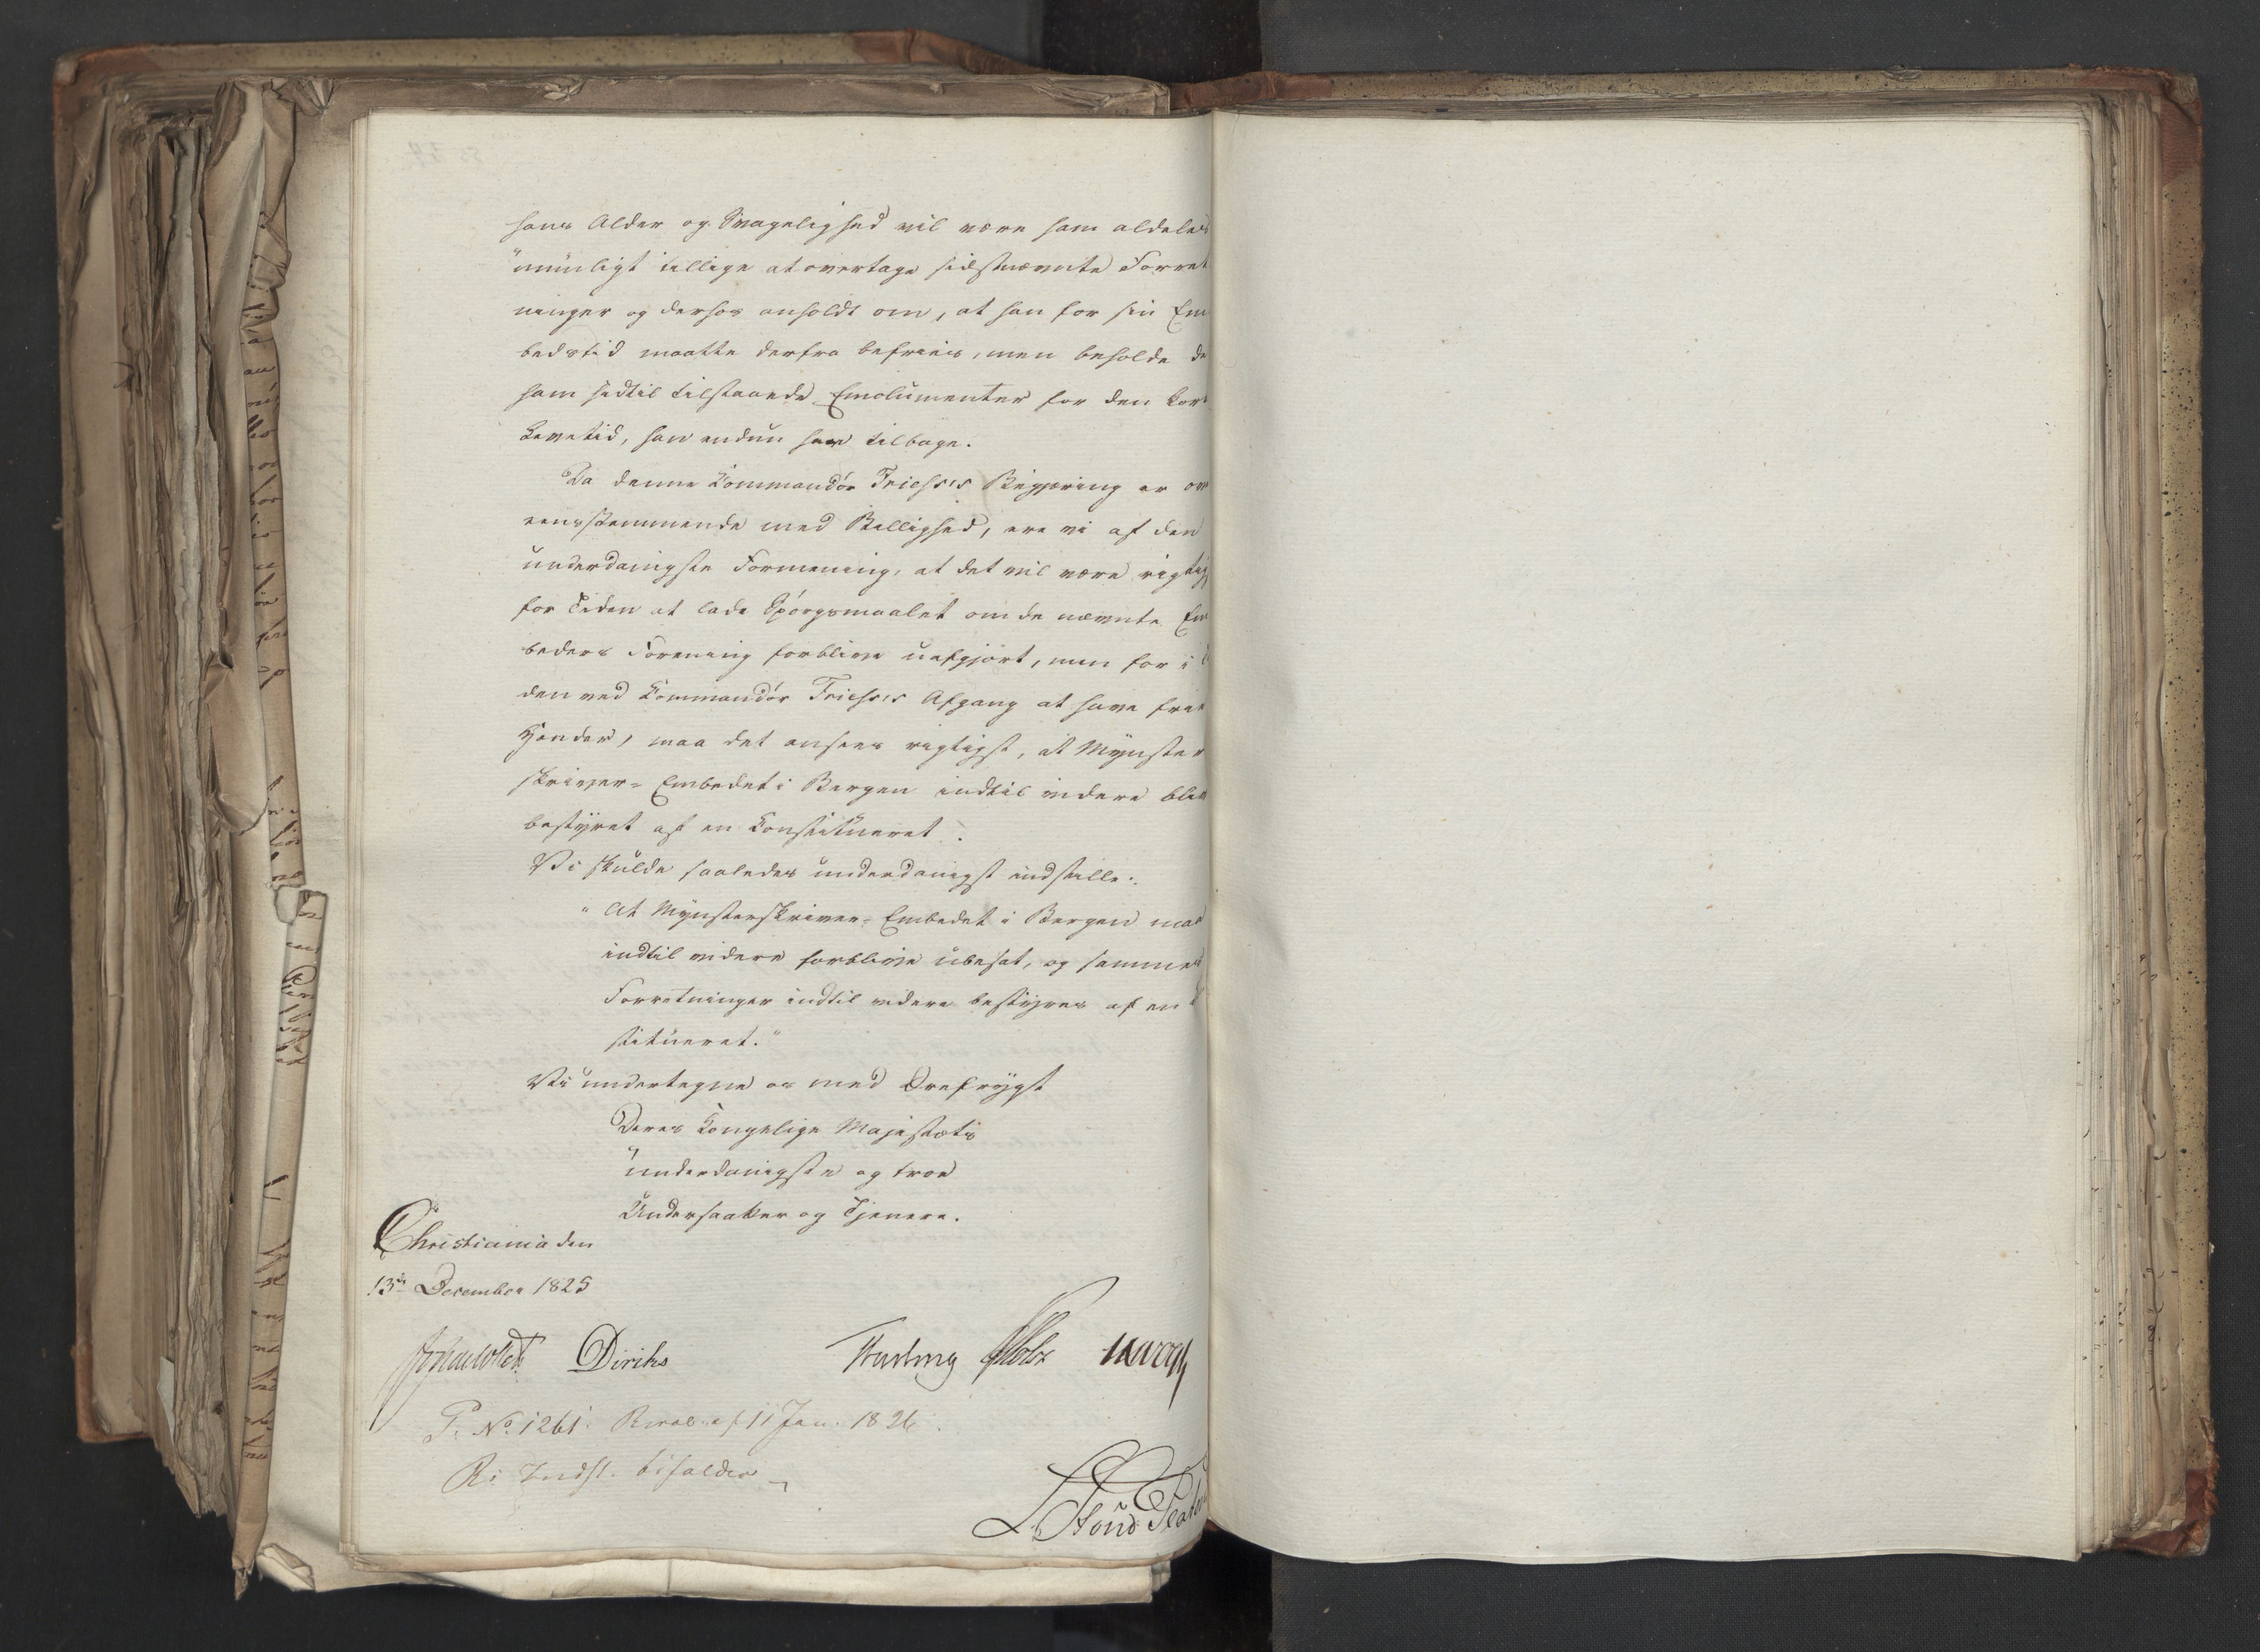 hans Alder og Svagelighed vil være ham aldeles
umuligt tillige at overtage sidstnævnte Forret
ninger og derhos anholdt om, at han for sin Em
bedstid maatte derfra befries, men beholde de
ham hidtil tilstaaede Emolumenter for den kor
Levetid, han endnu har tilbage.
Da denne Kommandør Friess's Begjæring er ov
eensstemmende med Billighed, ere vi af den
underdanigste Formening, at det vil være rigtig
for Tiden at lade Spørgsmaalet om de nævnte Em
beders Forening forblive uafgjort, men for i
den ved Kommandør Friess's Afgang at have frie
Hænder, maa det ansees rigtigst, at Mynster
skriver-Embedet i Bergen indtil videre bliv
bestyret af en Konstitueret.
Vi skulde saaledes underdanigst indstille:
"At Mynsterskriver-Embedet i Bergen maa
indtil videre forblive ubesat, og sammes
Forretninger indtil videre bestyres af en
stitueret."
Vi undertegne os med Ærefrygt
Deres Kongelige Majestæts
underdanigste og troe
Undersaatter og Tjenere.
Christiania den
13de December 1825
Diriks Motzfeldt
P: No 1261. Resol. af 11 Jan. 1826.
R: Indst. bifaldes